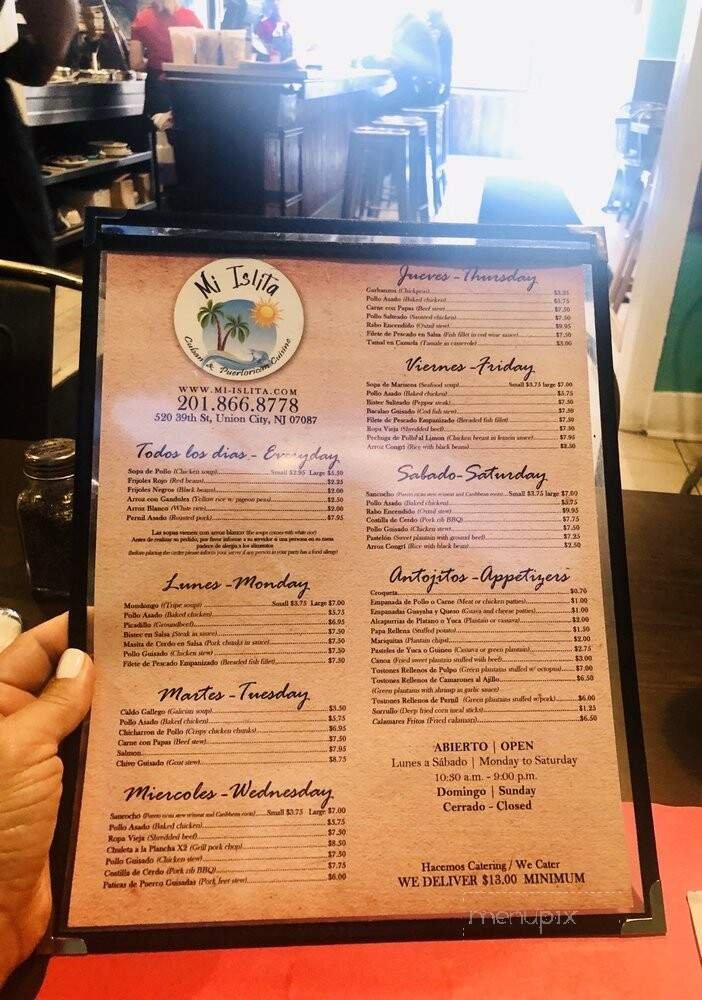 Mi Islita
Cuban & Puertorican Cuisine
WWW.MI-ISLITA.COM
201.866.8778
520 39th St, Union City, NJ 07087
Todos los dias - Everyday
Sopa de Pollo (Chicken soup) Small $2.95 Large $5.50
Frijoles Rojo (Red beans) $2.25
Frijoles Negros (Black beans) $2.00
Arroz con Gandules (Yellow rice w/ pigeon peas) $2.00
Arroz Blanco (White rice) $2.00
Pernil Asado (Roasted pork) $7.95
Las sopas vienen con arroz blanco (the soups comes with white rice)
Antes de realizar su pedido, por favor informe a su servidor si una persona en su mesa
padece de alergia a los alimentos
(Before placing the order please inform your server if any person in your party has a food allergy)
Lunes - Monday
Mondongo (Tripe soup) Small $3.75 Large $7.00
Pollo Asado (Baked chicken) $5.75
Picadillo (Groundbeef) $6.95
Bistec en Salsa (Steak in sauce) $7.50
Masita de Cerdo en Salsa (Pork chunks in sauce) $7.50
Pollo Guisado (Chicken stew) $7.50
Filete de Pescado Empanizado (Breaded fish fillet) $7.50
Martes - Tuesday
Caldo Gallego (Galician soup) $3.50
Pollo Asado (Baked chicken) $5.75
Chicharron de Pollo (Crispy chicken chunks) $6.95
Carne con Papas (Beef stew) $7.50
Salmon $7.95
Chivo Guisado (Goat stew) $8.75
Miercoles - Wednesday
Sancocho (Puerto rican stew w/meat and Caribbean roots) Small $3.75 Large $7.00
Pollo Asado (Baked chicken) $5.75
Ropa Vieja (Shredded beef) $7.50
Chuleta a la Plancha X2 (Grill pork chop) $8.50
Pollo Guisado (Chicken stew) $7.50
Costilla de Cerdo (Pork rib BBQ) $7.75
Paticas de Puerco Guisadas (Pork feet stew) $6.00
Jueves - Thursday
Garbanzos (Chickpeas) $3.25
Pollo Asado (Baked chicken) $5.75
Carne con Papas (Beef stew) $7.50
Pollo Salteado (Sauteed chicken) $7.50
Rabo Encendido (Oxtail stew) $9.95
Filete de Pescado en Salsa (Fish fillet in red wine sauce) $7.50
Tamal en Cazuela (Tamale in casserole) $3.00
Viernes - Friday
Sopa de Mariscos (Seafood soup) Small $3.75 large $7.00
Pollo Asado (Baked chicken) $5.75
Bistec Salteado (Pepper steak) $7.50
Bacalao Guisado (Cod fish stew) $7.50
Filete de Pescado Empanizado (Breaded fish fillet) $7.50
Ropa Vieja (Shredded beef) $7.50
Pechuga de Pollo al Limon (Chicken breast in lemon sauce) $7.95
Arroz Congri (Rice with black beans) $2.50
Sabado - Saturday
Sancocho (Puerto rican stew w/meat and Caribbean roots) Small $3.75 large $7.00
Pollo Asado (Baked chicken) $5.75
Rabo Encendido (Oxtail stew) $9.95
Costilla de Cerdo (Pork rib BBQ) $7.75
Pollo Guisado (Chicken stew) $7.50
Pastelón (Sweet plantain with ground beef) $7.25
Arroz Congri (Rice with black bean) $2.50
Antojitos - Appetizers
Croqueta $0.70
Empanada de Pollo o Carne (Meat or chicken patties) $1.00
Empanadas Guayaba y Queso (Guava and cheese patties) $1.00
Alcapurrias de Platano o Yuca (Plantain or cassava) $2.00
Papa Rellena (Stuffed potato) $1.50
Mariquitas (Plantain chips) $2.00
Pasteles de Yuca o Guineo (Cassava or green plantain) $2.75
Canoa (Fried sweet plantain stuffed with beef) $3.00
Tostones Rellenos de Pulpo (Green plantains stuffed w/ octopus) $7.00
Tostones Rellenos de Camarones al Ajillo $6.50
(Green plantains with shrimp in garlic sauce)
Tostones Rellenos de Pernil (Green plantains stuffed w/pork) $6.00
Sorrullo (Deep fried corn meal sticks) $1.25
Calamares Fritos (Fried calamari) $6.50
ABIERTO | OPEN
Lunes a Sábado | Monday to Saturday
10:30 a.m. - 9:00 p.m.
Domingo | Sunday
Cerrado - Closed
Hacemos Catering / We Cater
WE DELIVER $13.00 MINIMUM
menupix